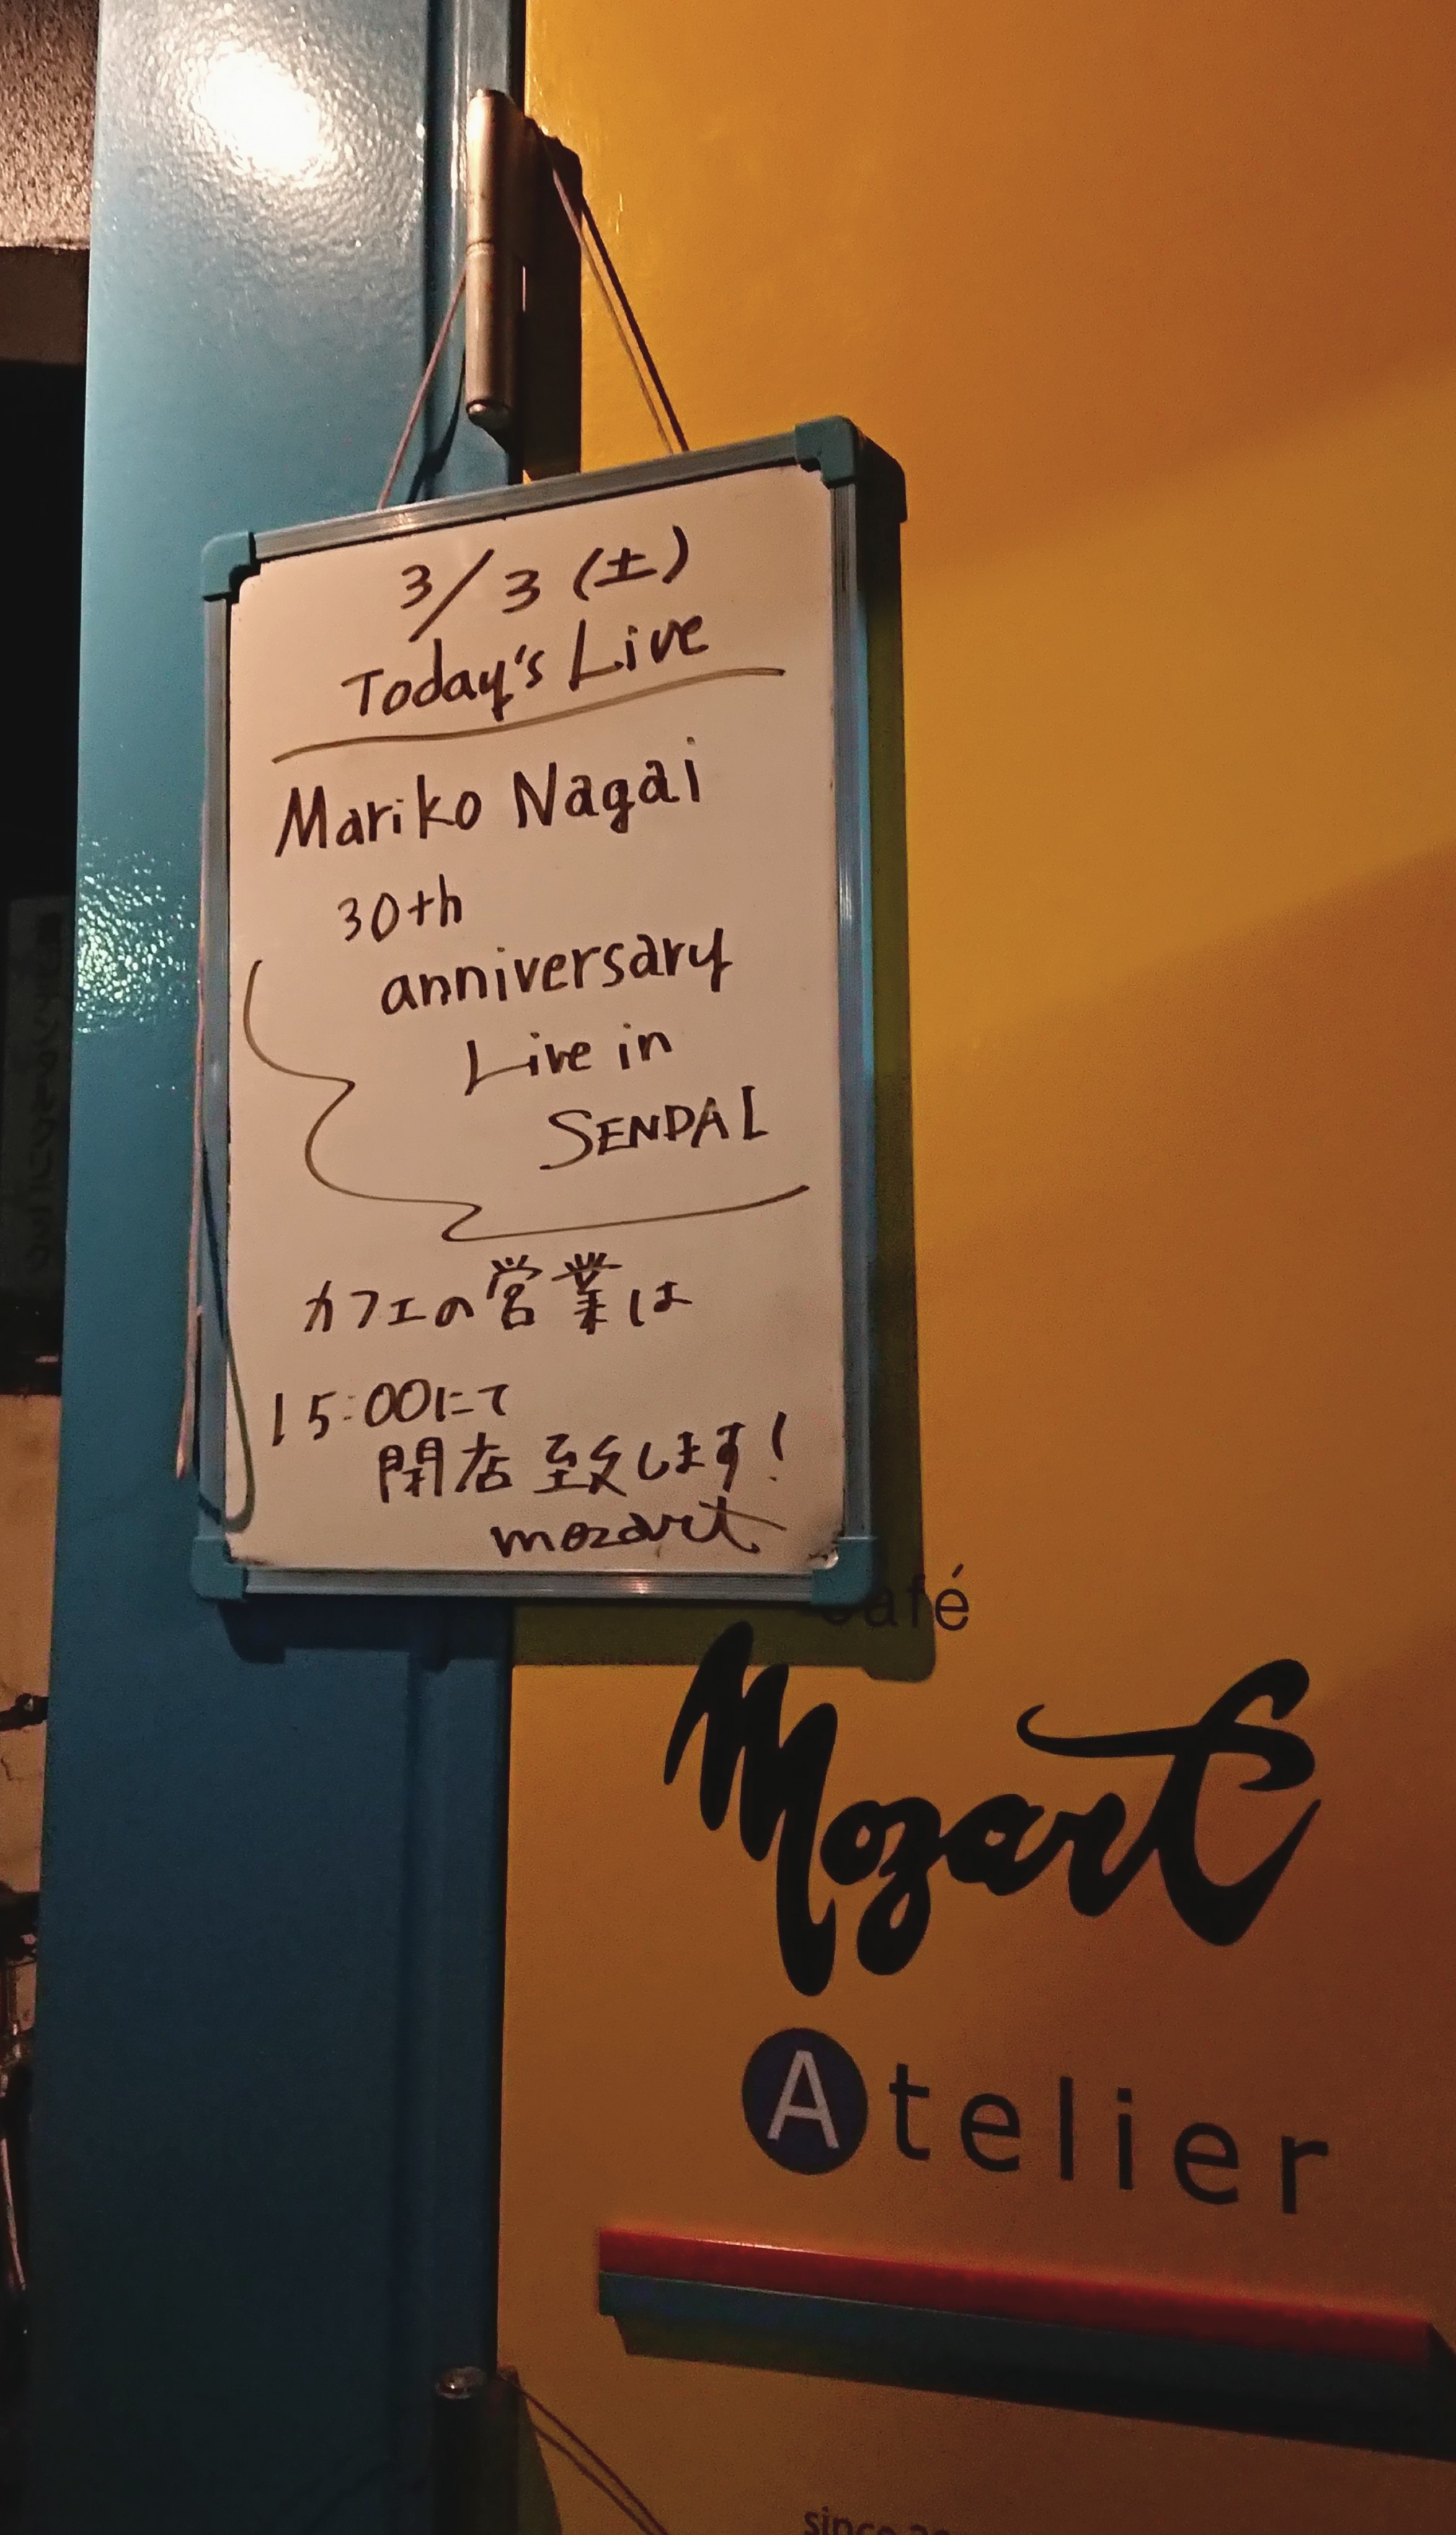 3/3(土)
Today's Live
Mariko Nagai
30th
anniversary
Live in
SENDAI
カフェの営業は
15:00にて
閉店致します!
mozart
Café
Mozart
Atelier
since